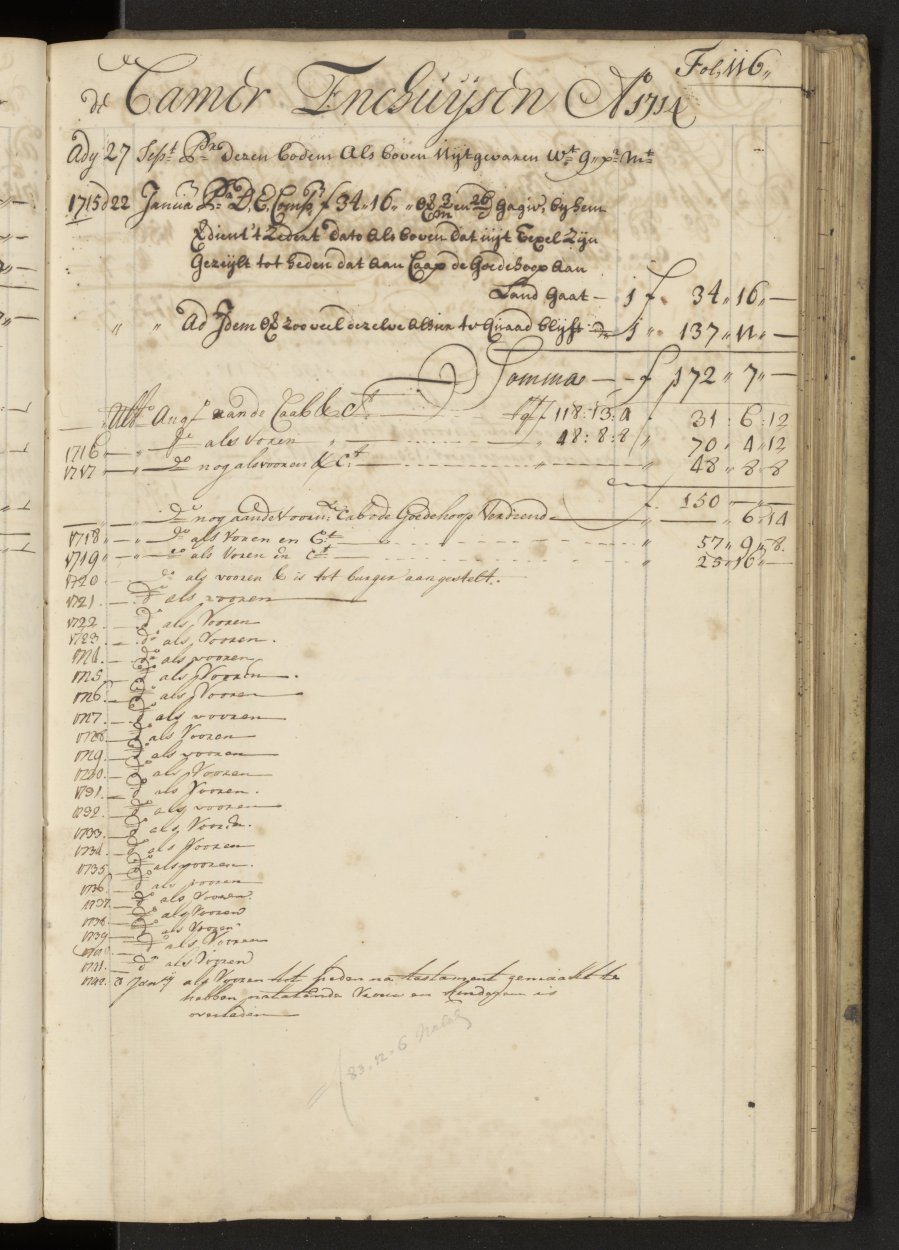 Fol: 116„
de Camer Enchuÿsen Ao 1714
Ady 27 Sept Pr dezen bodem als boven uijtgevaren Wt 9„ pr mt
1715 d 22 Januia Pr D' E, Comp f 34„16„ „ over 3 m en 26 d gagie, bij hem
verdient 't zedert dato als boven dat uijt Texel zijn
gezeijlt tot heden dat aan Caap de Goedehoop aan
Land gaat – 1 f 34„16„ –
„ „ Ad Idem over zoo veel dezelve alhier te quaad blijft – 1 „ 137„11„ –
Somma – – f 172„7„ –
– Ulto Augo aande Caab & Ct f 118:13:4 / 31:6:12
1716 – „ – do als voren „ „ 48:8:8 / 70„4„12
1717 – „ – do nog als vooren & Ct „ „ 48„8„8
f 150 – „ –
– „ – do nog aande voorn: Cabo de Goedehoop verdiend „ – „ 6:14
1718 – „ – do als voren en Ct „ 57„9„8
1719 – „ – do als voren en Ct „ 25„16„ –
1720 – do als vooren & is tot burger aangestelt.
1721 – do als vooren
1722 – do als Vooren
1723 – do als Vooren.
1724 – do als vooren
1725 – do als Vooren.
1726 – do als Vooren
1727 – do als vooren
1728 – do als Vooren
1729 – do als vooren
1730 – do als Vooren
1731 – do als Vooren.
1732 – do als vooren
1733 – do als Vooren.
1734 – do als Vooren
1735 – do als vooren.
1736 – do als vooren
1737 – do als Vooren.
1738 – do als Vooren
1739 – do als Vooren
1740 – do als Vooren
1741 – do als Vooren
1742 3 Janrij als Vooren tot heden na testament gemaakt te
hebben nalatende Vrouw en kinderen is
overleden
f 83„12„6